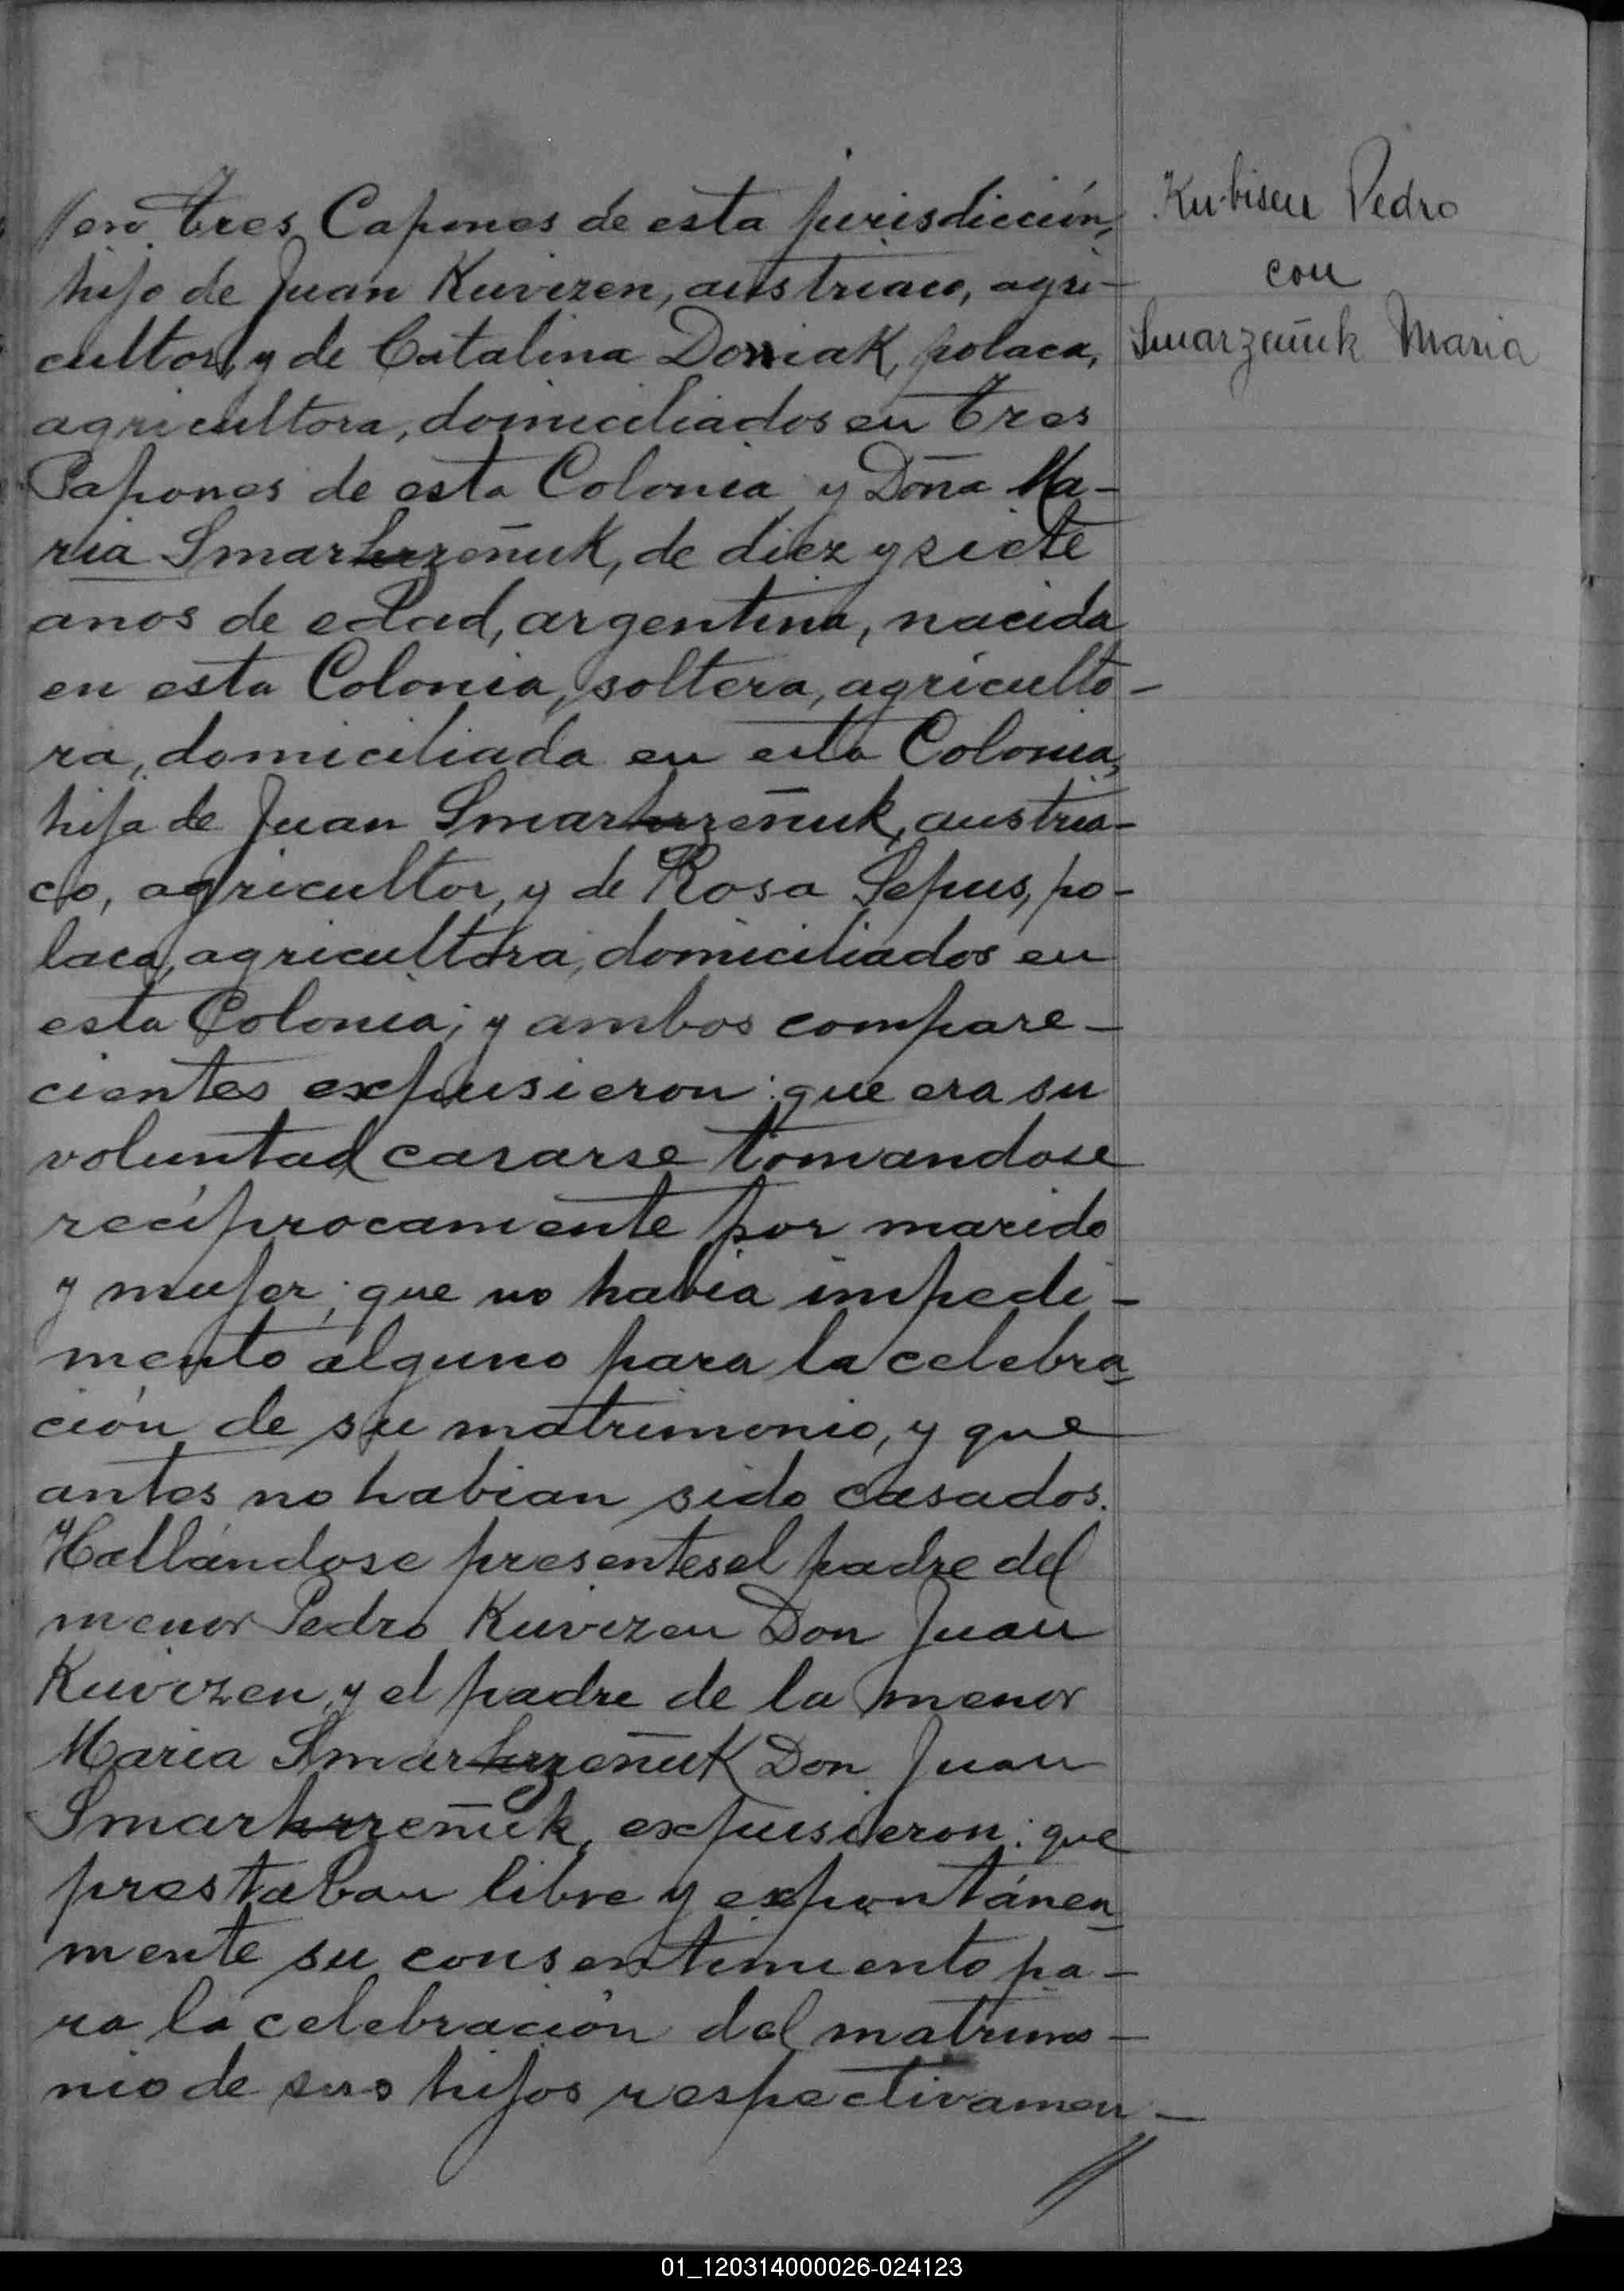 /en Tres Capones de esta jurisdicción,
hijo de Juan Kuvizen, austriaco, agri-
cultor, y de Catalina Doniak, polaca,
agricultora, domiciliados en Tres
Capones de esta Colonia y Doña Ma-
ria Smarhrzeñuk, de diez y siete
anos de edad, argentina, nacida
en esta Colonia, soltera, agriculto-
ra, domiciliada en esta Colonia,
hija de Juan Smarhrzeñuk, austria-
co, agricultor, y de Rosa Sepus, po-
laca, agricultora, domiciliados en
esta Colonia; y ambos compare-
cientes expusieron: que era su
voluntad casarse tomandose
recíprocamente por marido
y mujer; que no habia impedi-
mento alguno para la celebra-
ción de su matrimonio, y que
antes no habian sido casados.
Hallándose presentes el padre del
menor Pedro Kuvizen Don Juan
Kuvizen y el padre de la menor
Maria Smarhrzeñuk Don Juan
Smarhrzeñuk, expusieron: que
prestaban libre y expontánea-
mente su consentimiento pa-
ra la celebración del matrimo-
nio de sus hijos respectivamen-
//
Kubiseu Pedro
con
Smarzeñuk Maria
01_120314000026-024123